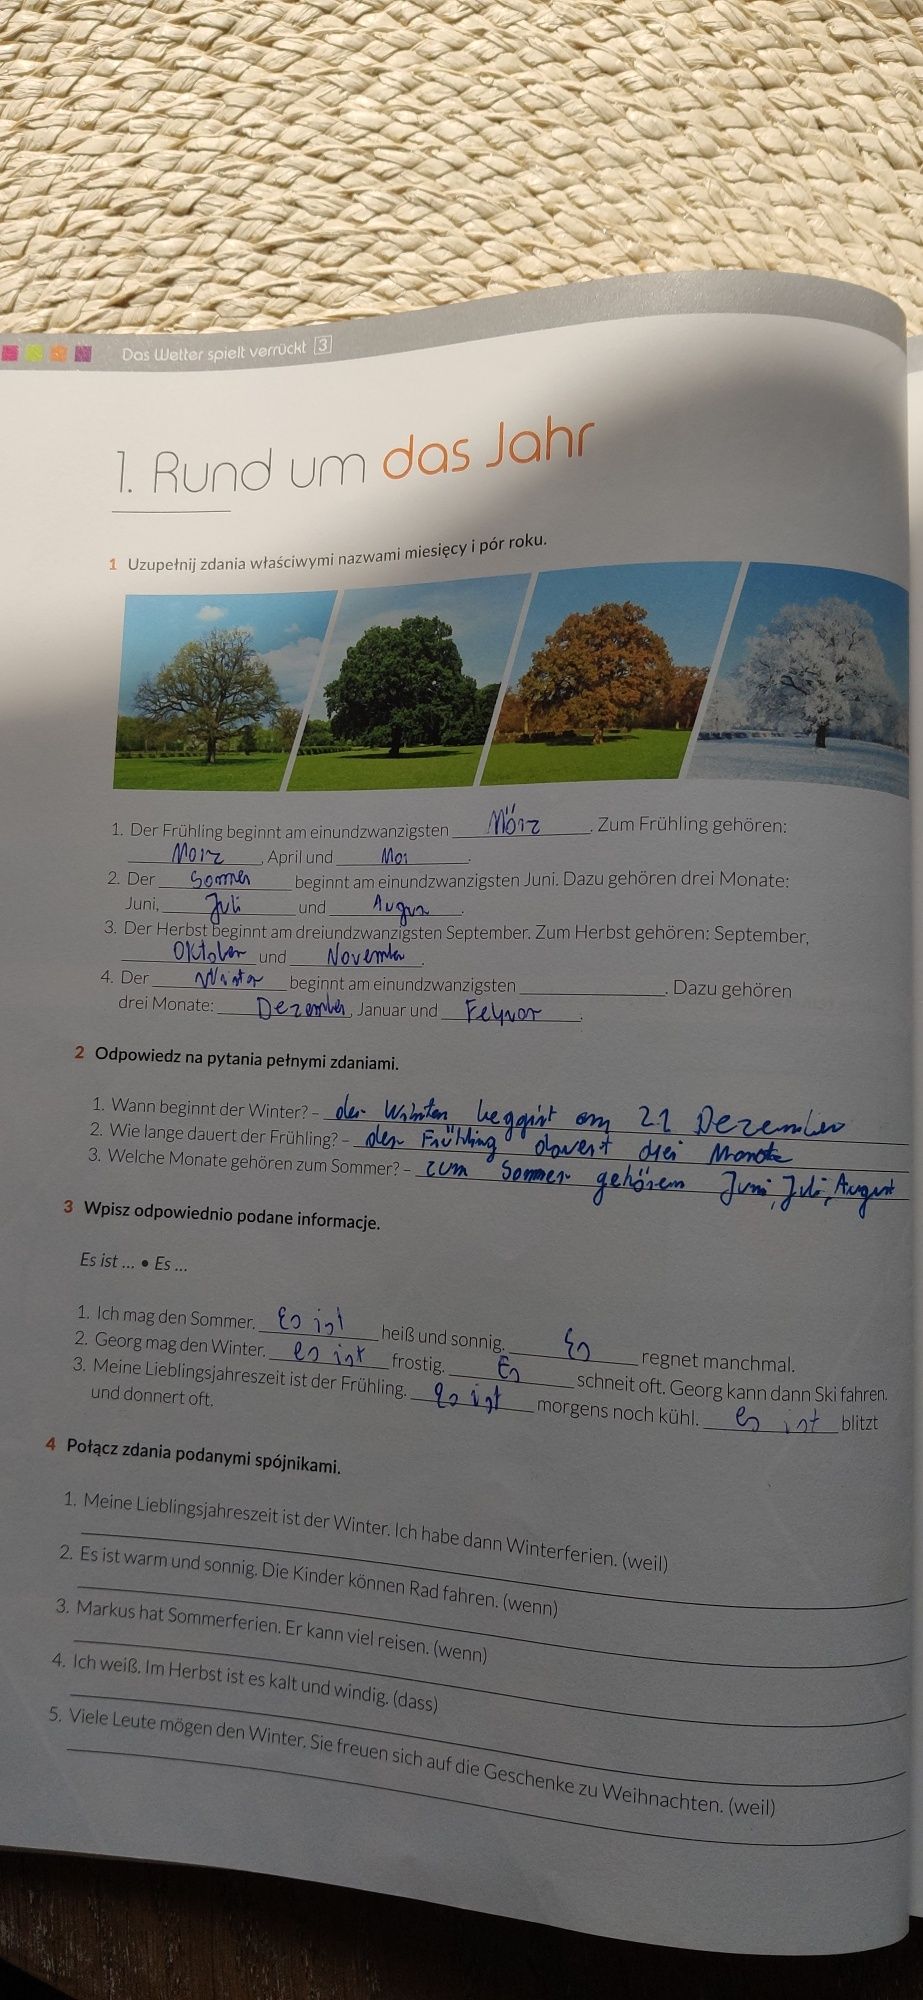 Das Wetter spielt verrückt 3
1. Rund um das Jahr
1 Uzupełnij zdania właściwymi nazwami miesięcy i pór roku.
1. Der Frühling beginnt am einundzwanzigsten März. Zum Frühling gehören:
März, April und Mai.
2. Der Sommer beginnt am einundzwanzigsten Juni. Dazu gehören drei Monate:
Juni, Juli und .
3. Der Herbst beginnt am dreiundzwanzigsten September. Zum Herbst gehören: September,
Oktober und November.
4. Der Winter beginnt am einundzwanzigsten ____. Dazu gehören
drei Monate: Dezember, Januar und .
2 Odpowiedz na pytania pełnymi zdaniami.
1. Wann beginnt der Winter? – der am 21 Dezember
2. Wie lange dauert der Frühling? – der Frühling dauert drei Monate
3. Welche Monate gehören zum Sommer? – zum Sommer gehören Juni, Juli, August
3 Wpisz odpowiednio podane informacje.
Es ist ... • Es ...
1. Ich mag den Sommer. Es ist heiß und sonnig. Es regnet manchmal.
2. Georg mag den Winter. es ist frostig. Es schneit oft. Georg kann dann Ski fahren.
3. Meine Lieblingsjahreszeit ist der Frühling. es ist morgens noch kühl. es ist blitzt
und donnert oft.
4 Połącz zdania podanymi spójnikami.
1. Meine Lieblingsjahreszeit ist der Winter. Ich habe dann Winterferien. (weil)
2. Es ist warm und sonnig. Die Kinder können Rad fahren. (wenn)
3. Markus hat Sommerferien. Er kann viel reisen. (wenn)
4. Ich weiß. Im Herbst ist es kalt und windig. (dass)
5. Viele Leute mögen den Winter. Sie freuen sich auf die Geschenke zu Weihnachten. (weil)